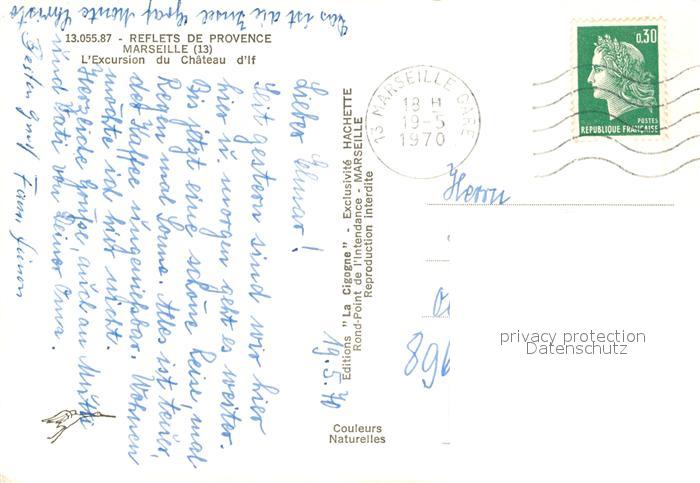 Das ist die Insel Graf Monte Christo
13.055.87 - REFLETS DE PROVENCE
MARSEILLE (13)
L'Excursion du Château d'If
19.5.70
Lieber Elmar!
Seit gestern sind wir hier
hier u. morgen geht es weiter.
Bis jetzt eine schöne Reise, mal
Regen mal Sonne. Alles ist teuer,
der Kaffee ungenießbar. Wohnen
möchte ich hier nicht.
Herzliche Grüße, auch an Mutti
und Vati von Deiner Oma.
Besten Gruß
Editions "La Cigogne" - Exclusivité HACHETTE
Rond-Point de l'Intendance - MARSEILLE
Reproduction interdite
Couleurs
Naturelles
13 MARSEILLE GARE
18 H
19-5
1970
0,30
POSTES
REPUBLIQUE FRANÇAISE
Herrn
896
privacy protection
Datenschutz